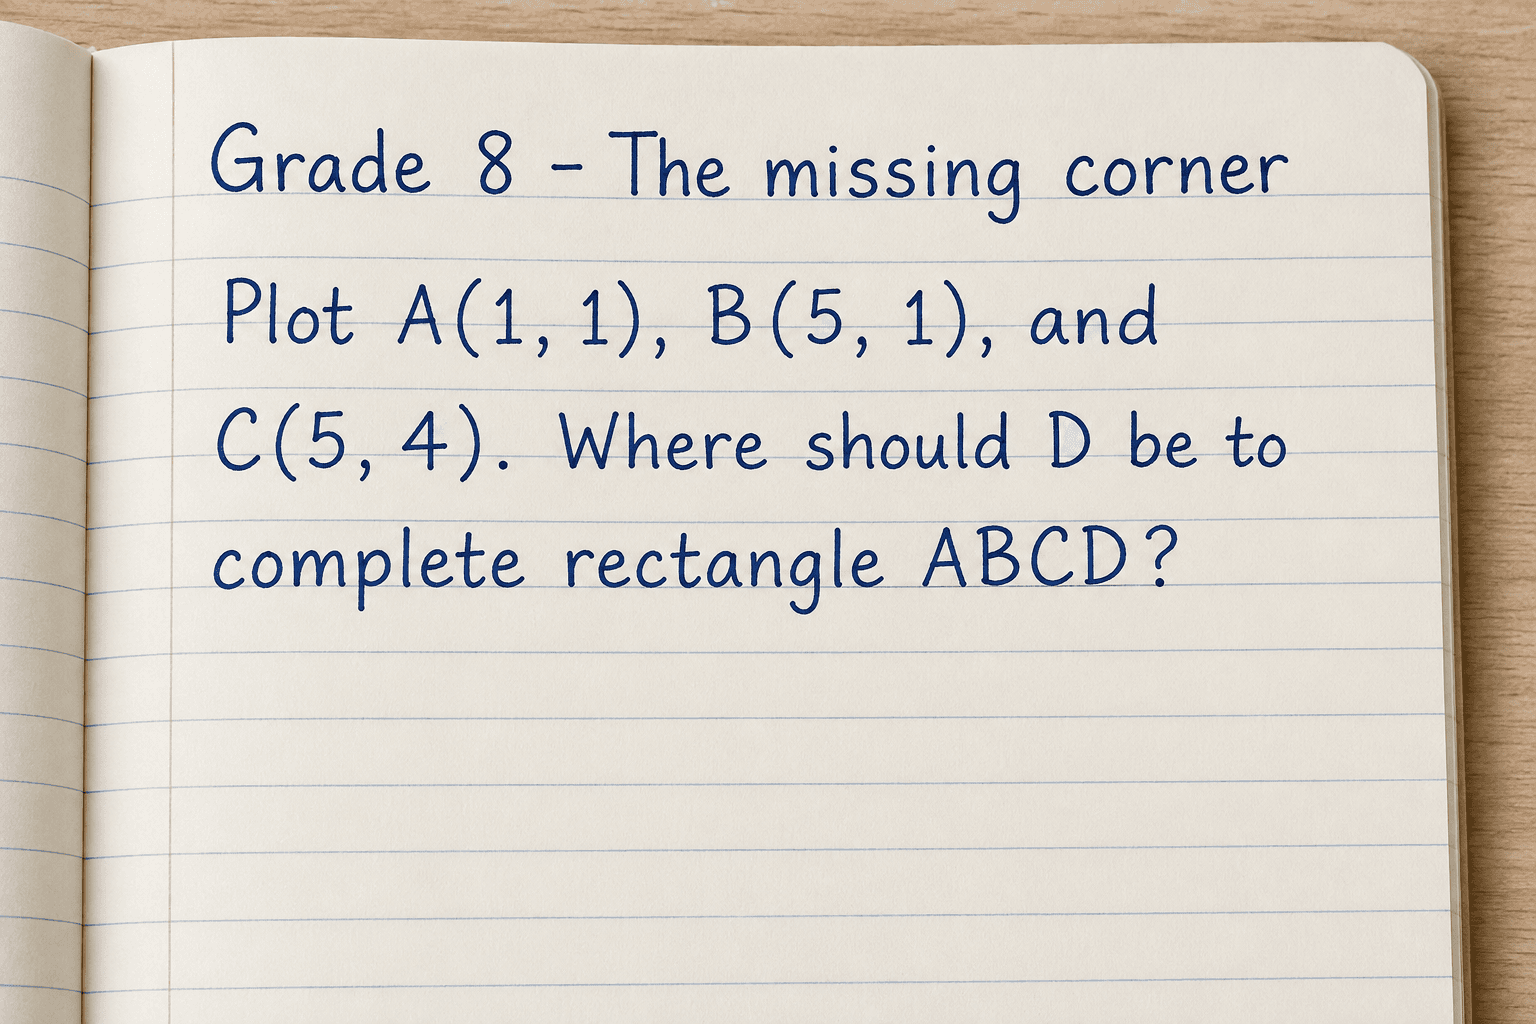 Grade 8 – The missing corner
Plot A(1, 1), B(5, 1), and
C(5, 4). Where should D be to
complete rectangle ABCD?